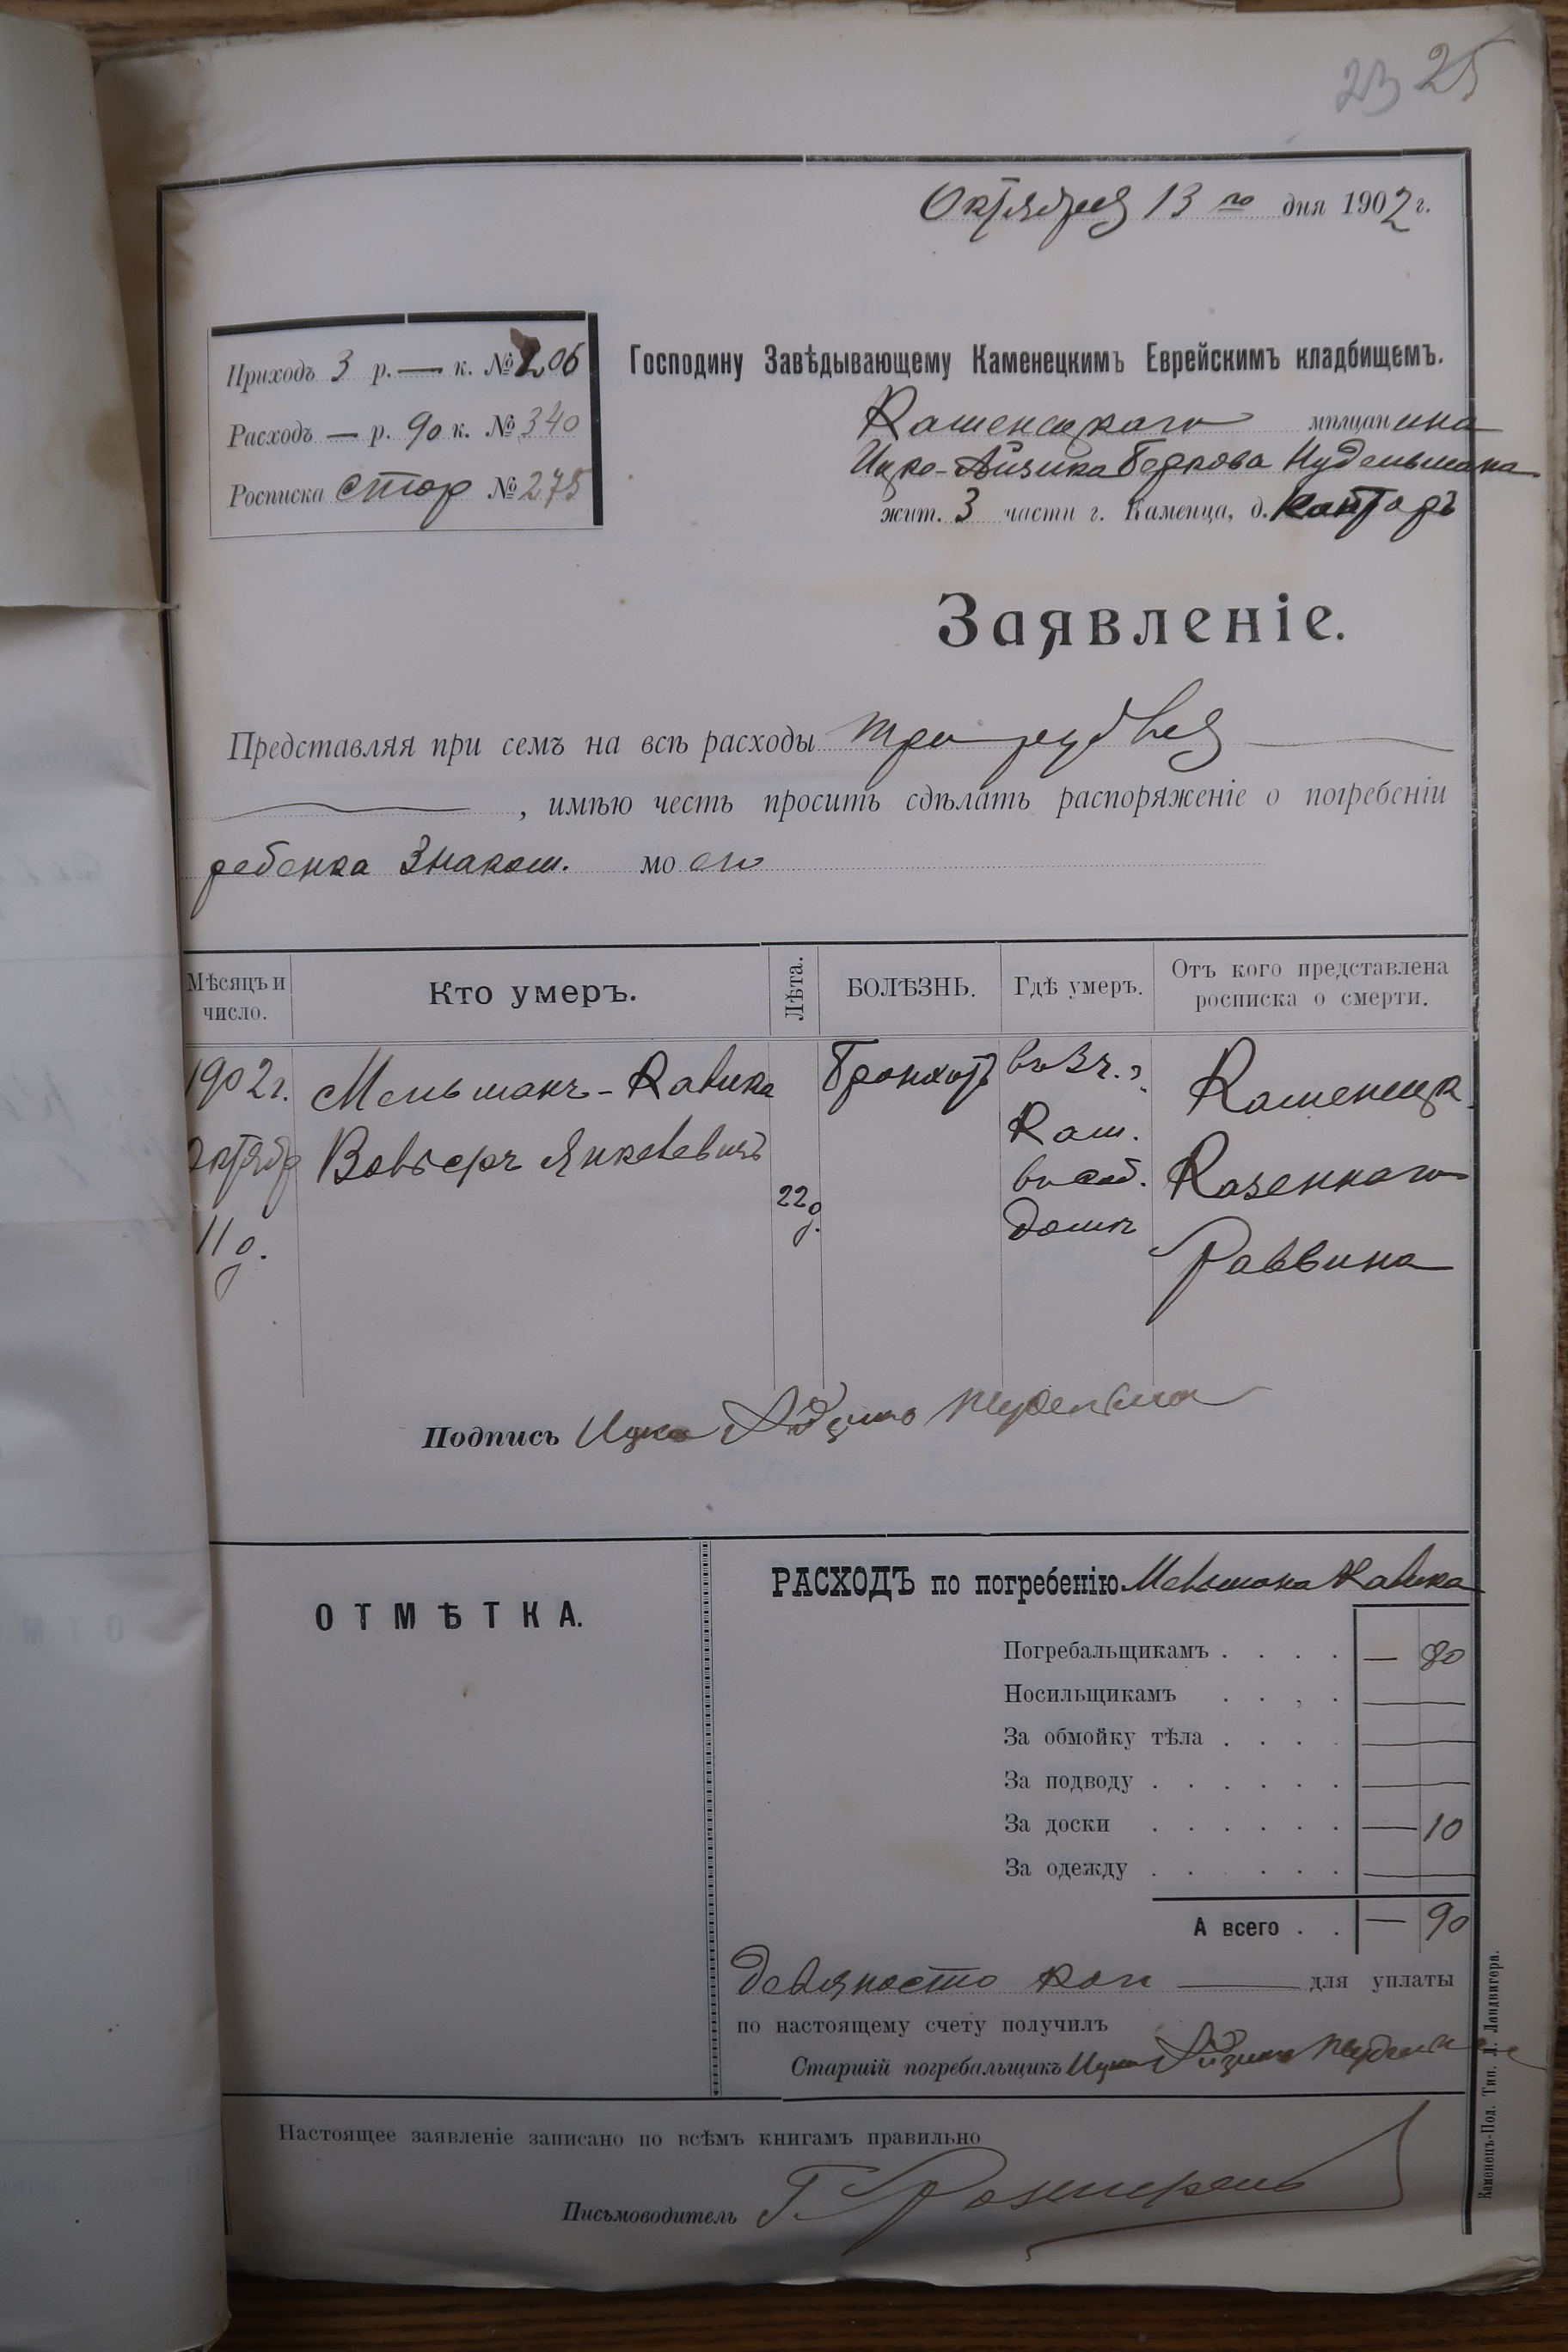 23 25
Октября 13 го дня 1902 г.
Приходъ 3 р. — к. № 206
Расходъ — р. 90 к. № 340
Росписка стор № 275
Господину Завѣдывающему Каменецкимъ Еврейскимъ кладбищемъ.
Каменецкаго мѣщанина
Ицко-Айзика Беркова Нудельмана
жит. 3 части г. Каменца, д.
Заявленіе.
Представляя при семъ на всѣ расходы три рубля
, имѣю честь просить сдѣлать распоряженіе о погребеніи
ребенка Знаком. моего
Мѣсяцъ и число. Кто умеръ. Лѣта. БОЛѢЗНЬ. Гдѣ умеръ. Отъ кого представлена росписка о смерти.
1902 г. Мельманъ-Кавика Бронхитъ въ 3 ч. г. Каменецк.
Октябр Янкелевичъ Кам. Казеннаго
11 д. 22 д. въ соб. домѣ Раввина
Подпись Ицко Айзикъ Нудельма
ОТМѢТКА.
РАСХОДЪ по погребенію Мельмана Кавика
Погребальщикамъ . . . . — 80
Носильщикамъ . . , . —
За обмойку тѣла . . . . —
За подводу . . . . . . —
За доски . . . . . . — 10
За одежду . . . . . . —
А всего . . — 90
девяносто коп — для уплаты
по настоящему счету получилъ
Старшій погребальщикъ Ицко Айзикъ
Настоящее заявленіе записано по всѣмъ книгамъ правильно
Письмоводитель Г.
Каменецъ-Под. Тип. Л. Ландвигера.